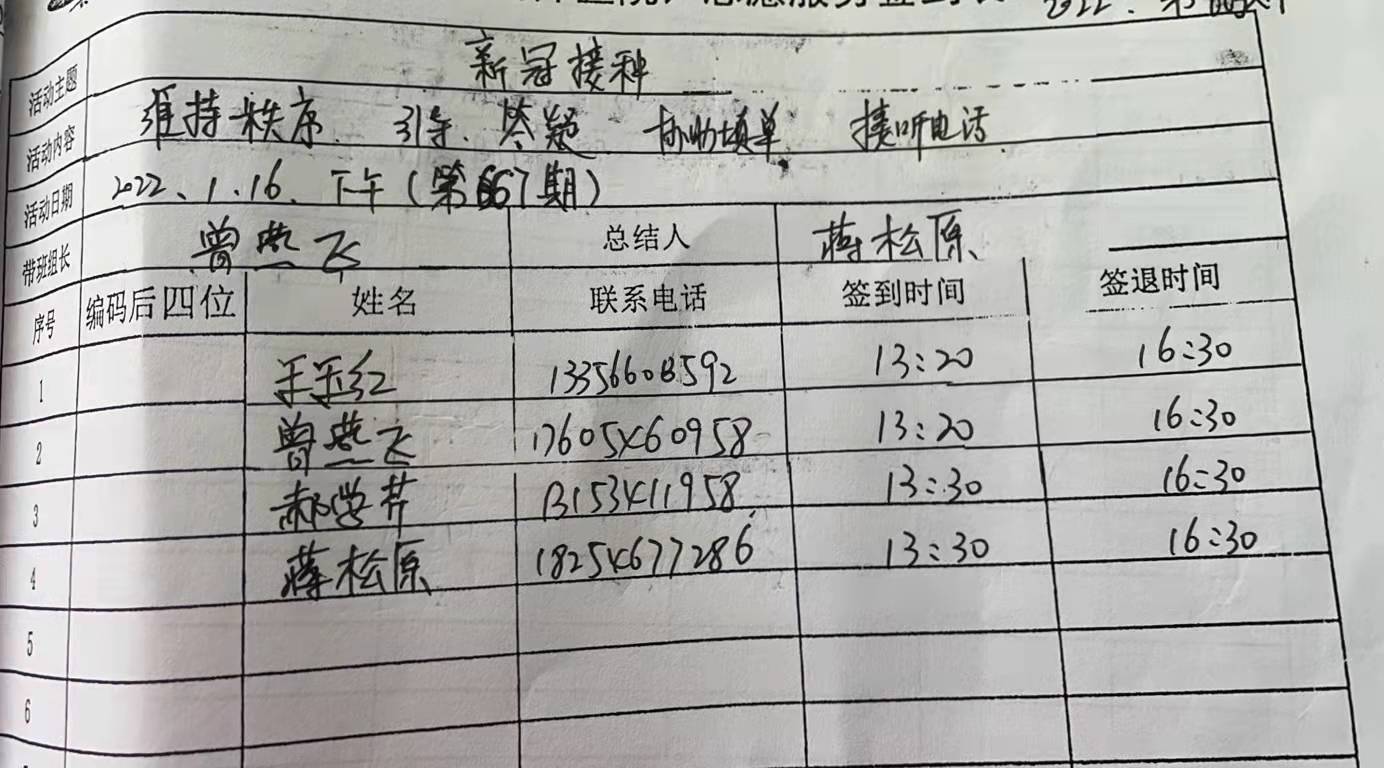 志愿服务签到表 2022.
活动主题 新冠接种
活动内容 维持秩序 引导、答疑 协助填单、接听电话
活动日期 2022、1.16、下午(第667期)
带班组长 曾燕飞 总结人 蒋松原
序号 编码后四位 姓名 联系电话 签到时间 签退时间
1 13356608592 13:20 16:30
2 曾燕飞 17605460958 13:20 16:30
3 郝学芹 13153411958 13:30 16:30
4 蒋松原 18254677286 13:30 16:30
5
6